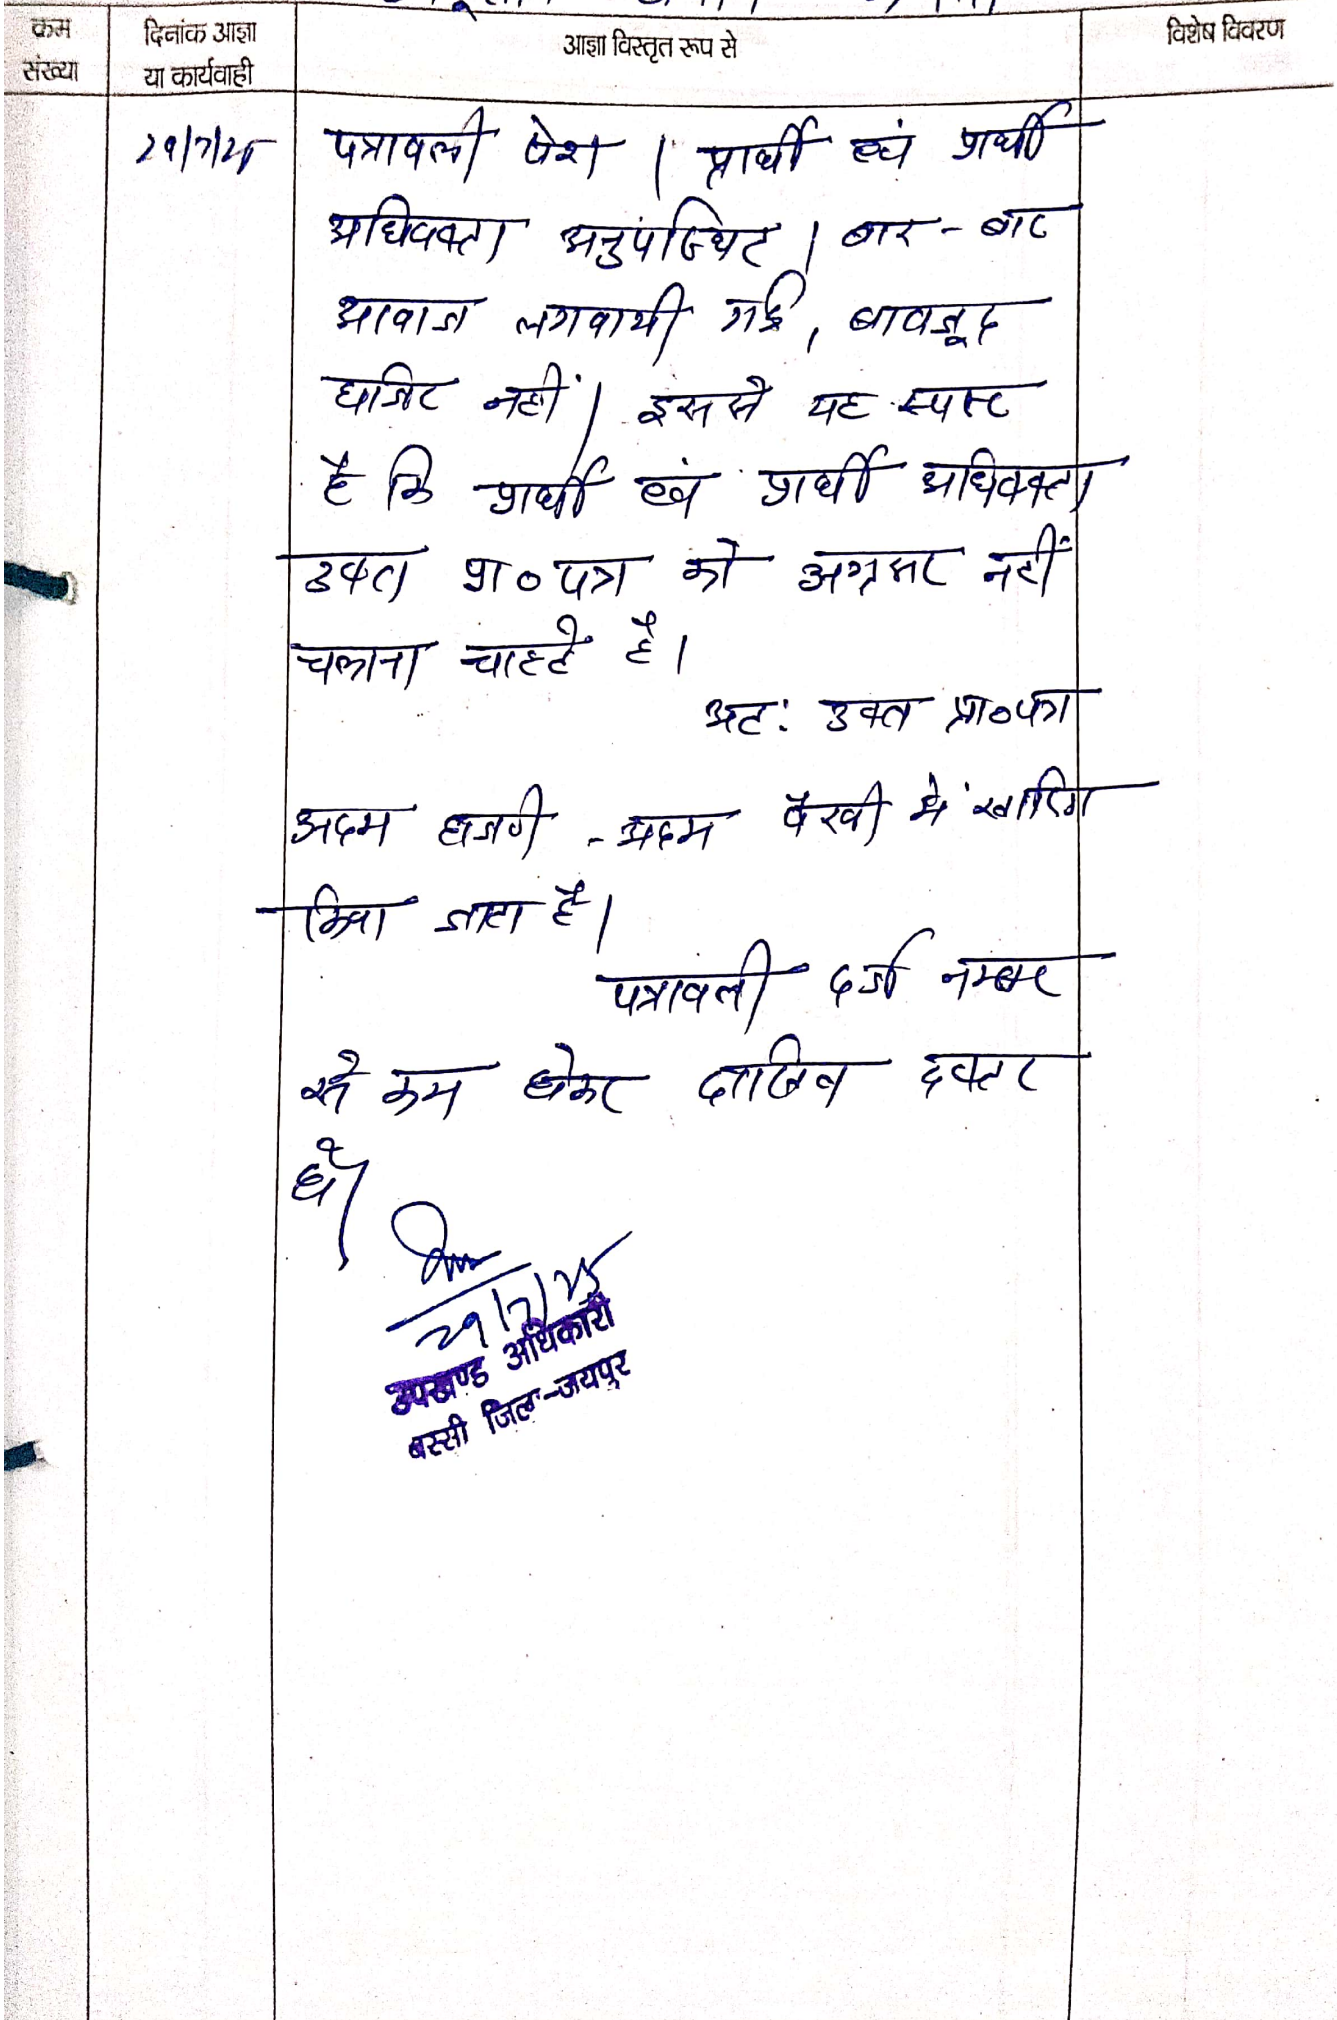 क्रम संख्या
दिनांक आज्ञा या कार्यवाही
आज्ञा विस्तृत रूप से
विशेष विवरण
29/7/25
पत्रावली पेश । प्रार्थी एवं प्रार्थी
अधिवक्ता अनुपस्थित । बार-बार
आवाज लगवायी गई, बावजूद
हाजिर नहीं । इससे यह स्पष्ट
है कि प्रार्थी एवं प्रार्थी अधिवक्ता
उक्त प्रा०पत्र को अग्रसर नहीं
चलाना चाहते है ।
अतः उक्त प्रा०पत्र
अदम हाजरी - अदम पैरवी में खारिज
किया जाता है ।
पत्रावली दर्ज नम्बर
से कम होकर दाखिल दफ्तर
हो ।
29/7/25
उपखण्ड अधिकारी
बस्सी जिला-जयपुर